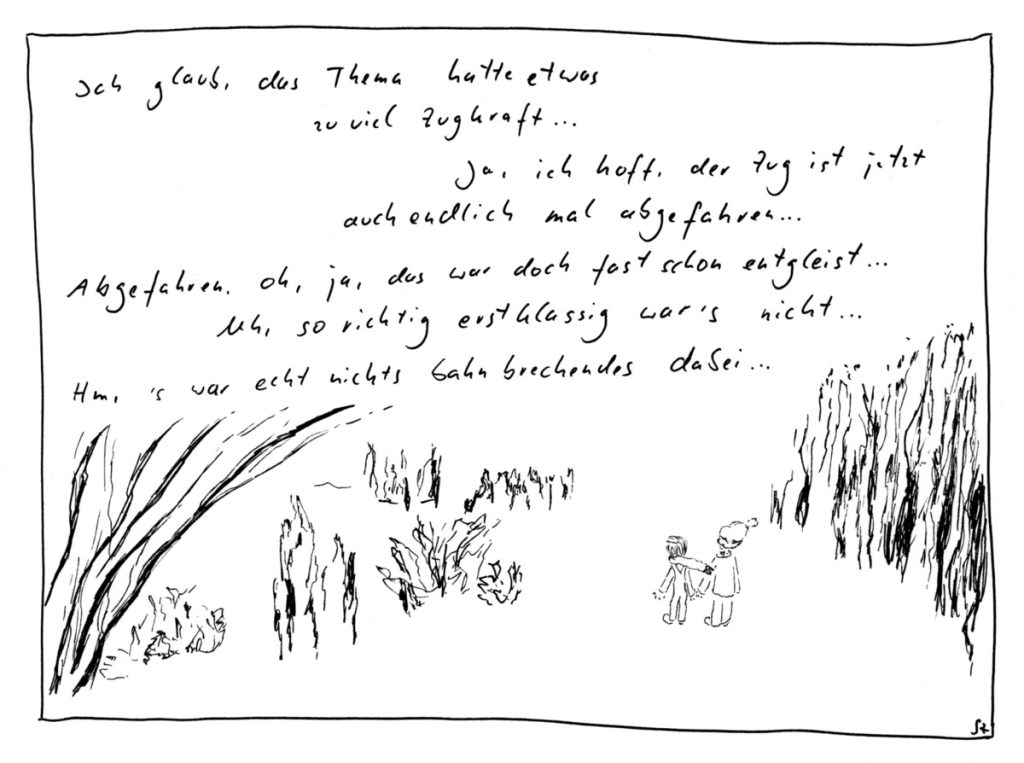 Ich glaub, das Thema hatte etwas
zu viel Zugkraft...
Ja, ich hoff, der Zug ist jetzt
auch endlich mal abgefahren...
Abgefahren. Oh, ja, das war doch fast schon entgleist...
Uh, so richtig erstklassig war's nicht...
Hm, 's war echt nichts bahnbrechendes dabei...